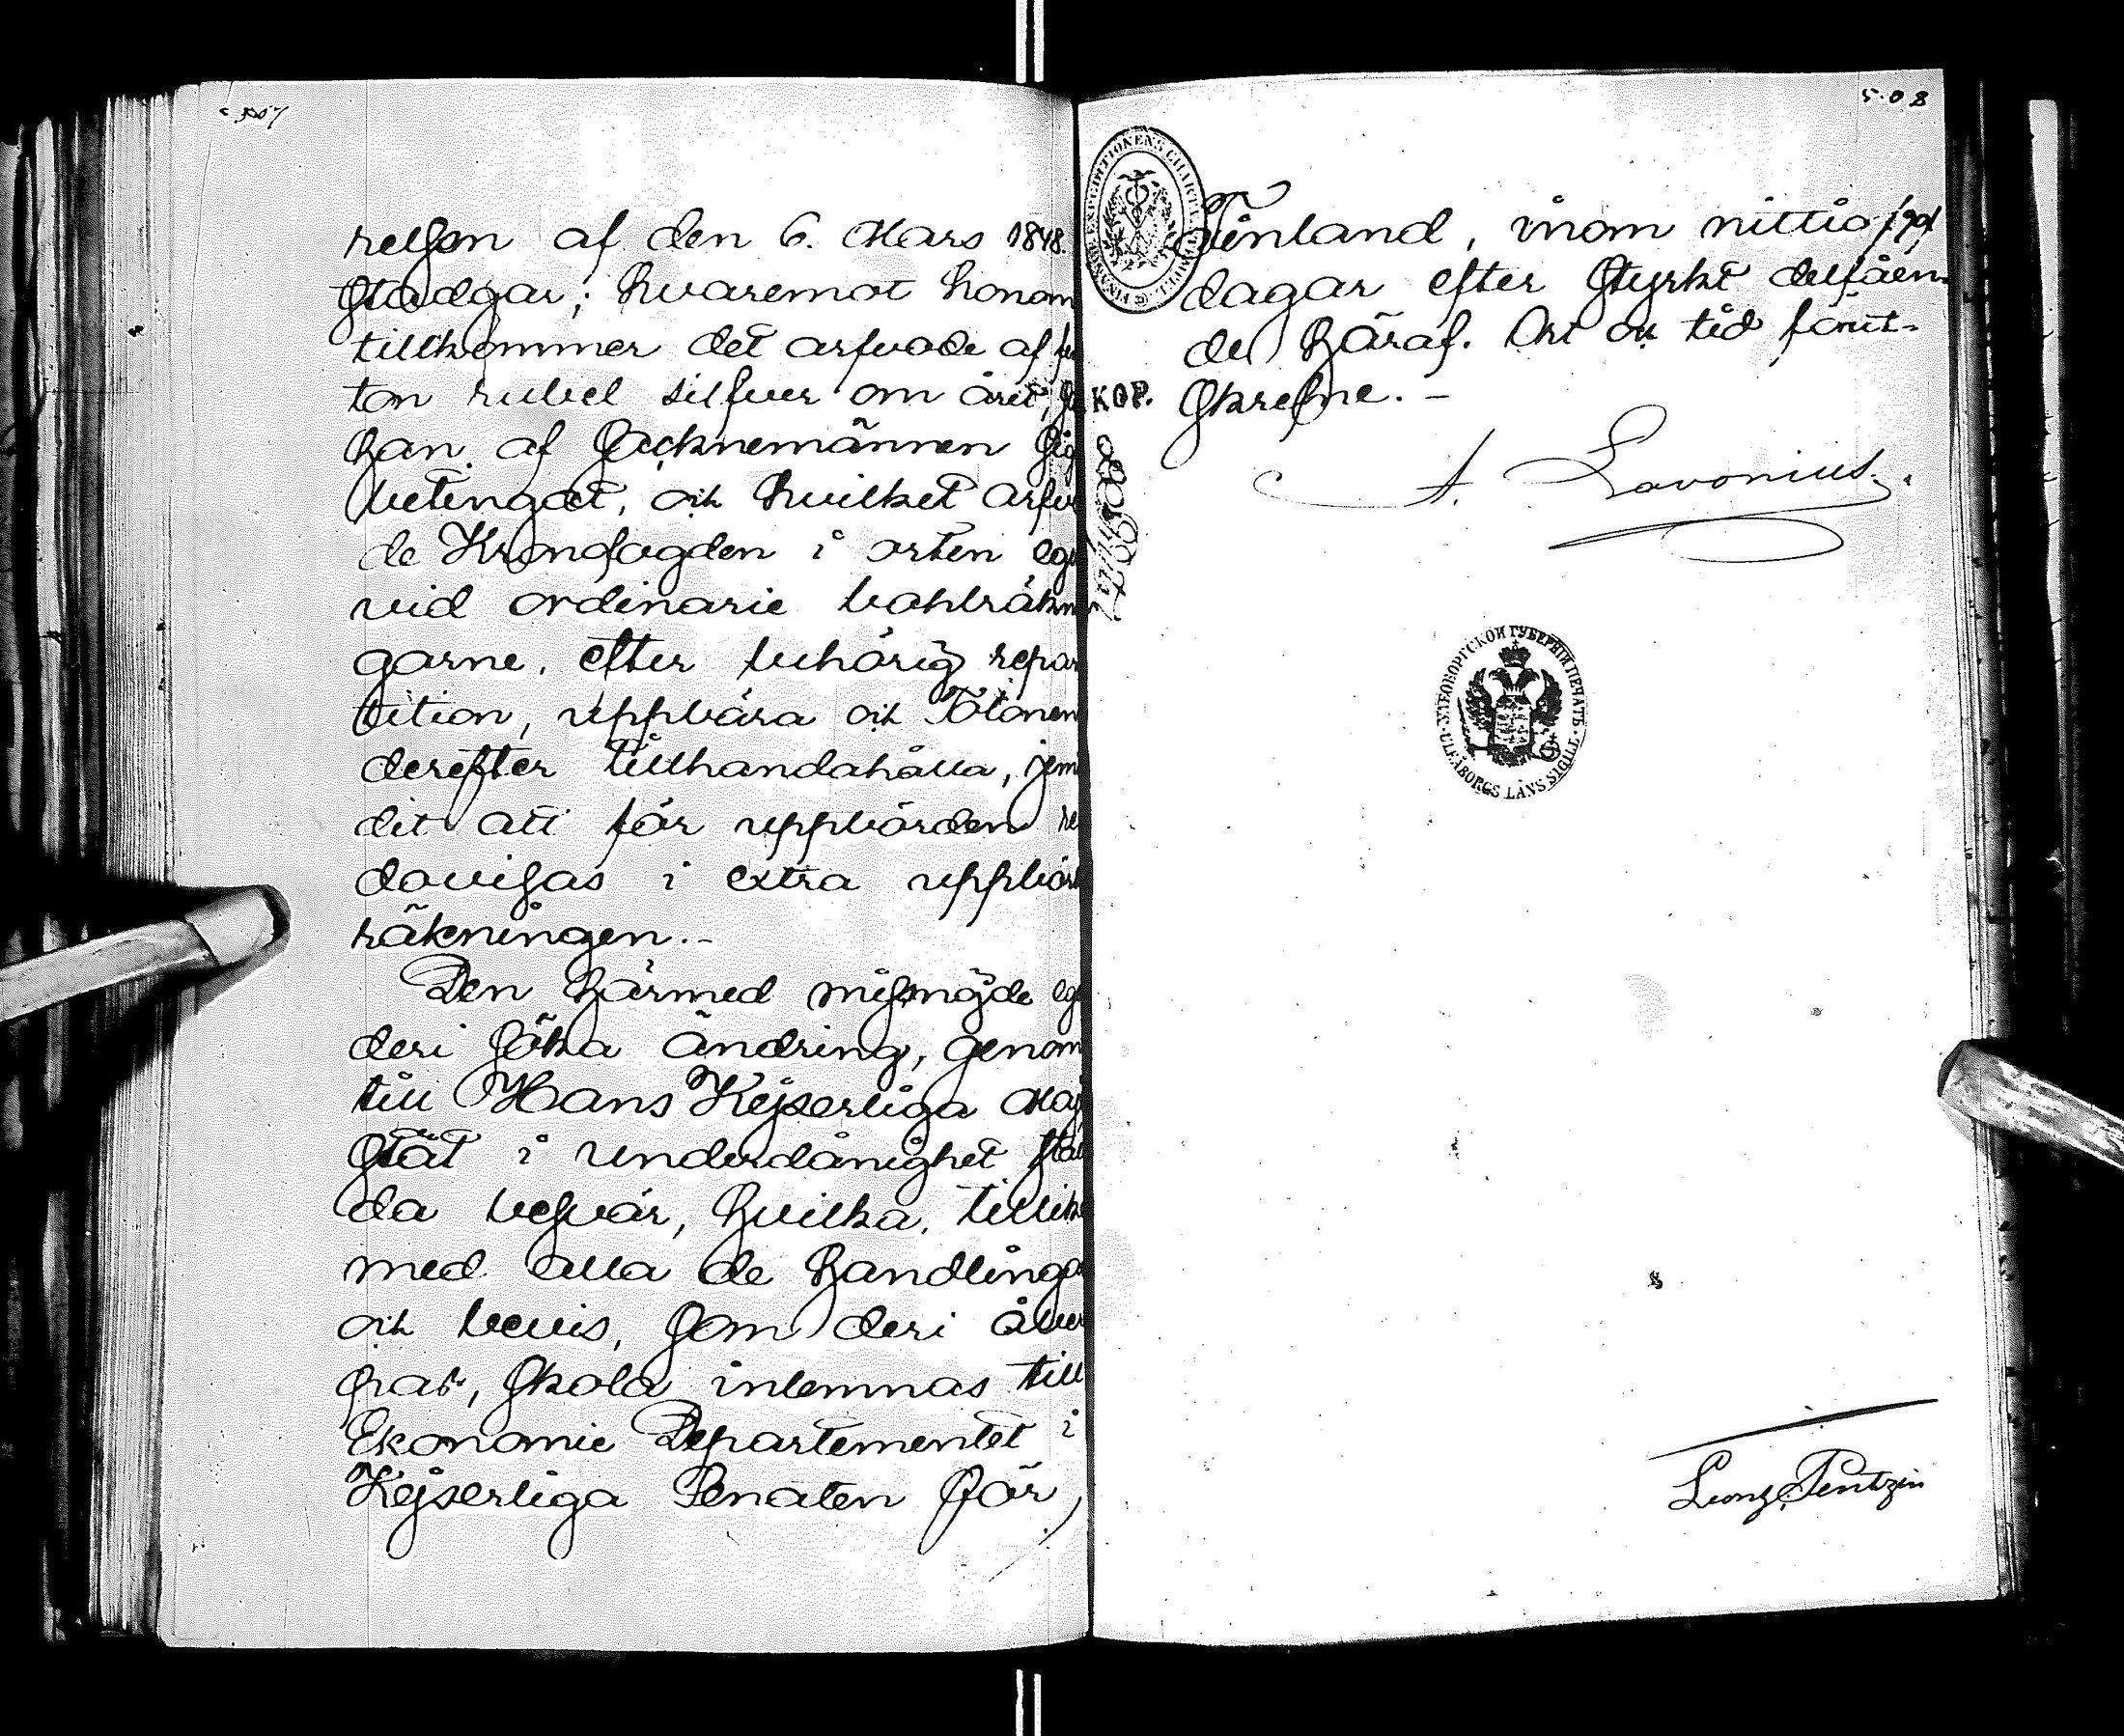 507
relsen af den 6. Mars 1848.
stadgar; hvaremot honom
tillkommer det arfvode af
ton rubel silfver om året,
han af Socknemännen sig
betingat, och hvilket arfvo
de Kronofogden i orten ega
vid ordinarie bohlräknin
garne, efter behörig repar
tition, uppbära och Tötönen
derefter tillhandahålla, jem
dit att för uppbörden re
dovisas i extra uppbörds
räkningen.-
Den härmed missnöjde ege
deri söka ändring, genom
till Hans Kejserliga Maj
stät i underdånighet stäl
da besvär, hvilka, tillika
med alla de handlingar
och bevis, som deri åbero
pas, skola inlemnas till
Ekonomie Departementet i
Kejserliga Senaten för
508
FINANCE EXPEDITIONENS CHARTÆ
KOP.
Finland, inom nittio /90/
dagar efter styrkt delfåen-
de häraf. Ort och tid förut-
skrefne.-
A. Lavonius.
УЛЕОБОРГСКОЙ ГУБЕРНІИ ПЕЧАТЬ
ULEÅBORGS LÄNS SIGILL